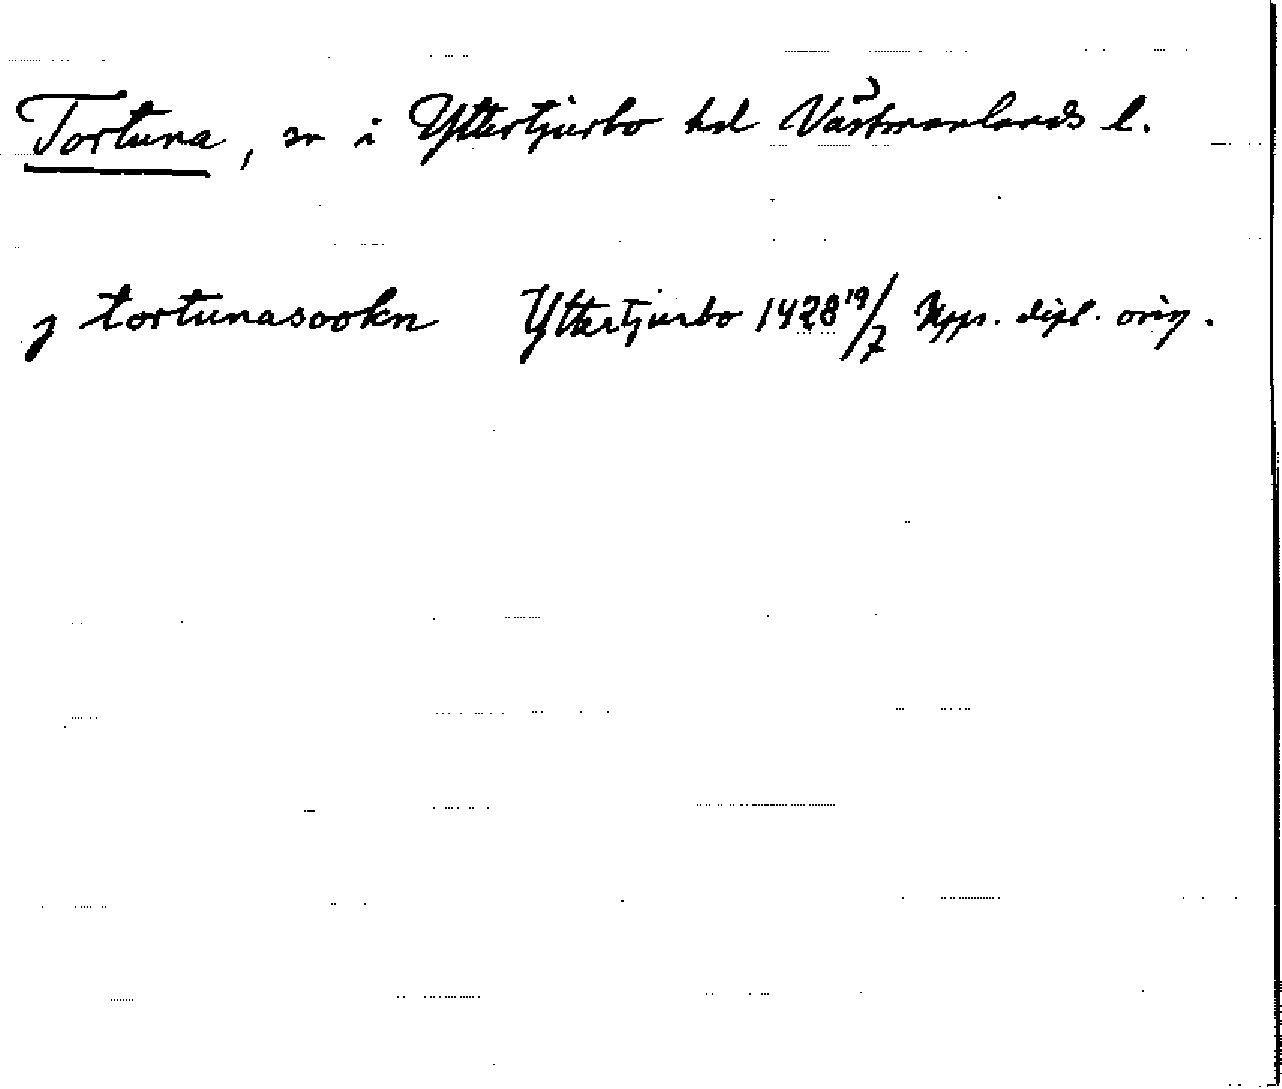 Tortuna, sn i Yttertjurbo hd Västmanlands l.
j tortunasookn Yttertjurbo 1428 19/7 Upps. dipl. orig.